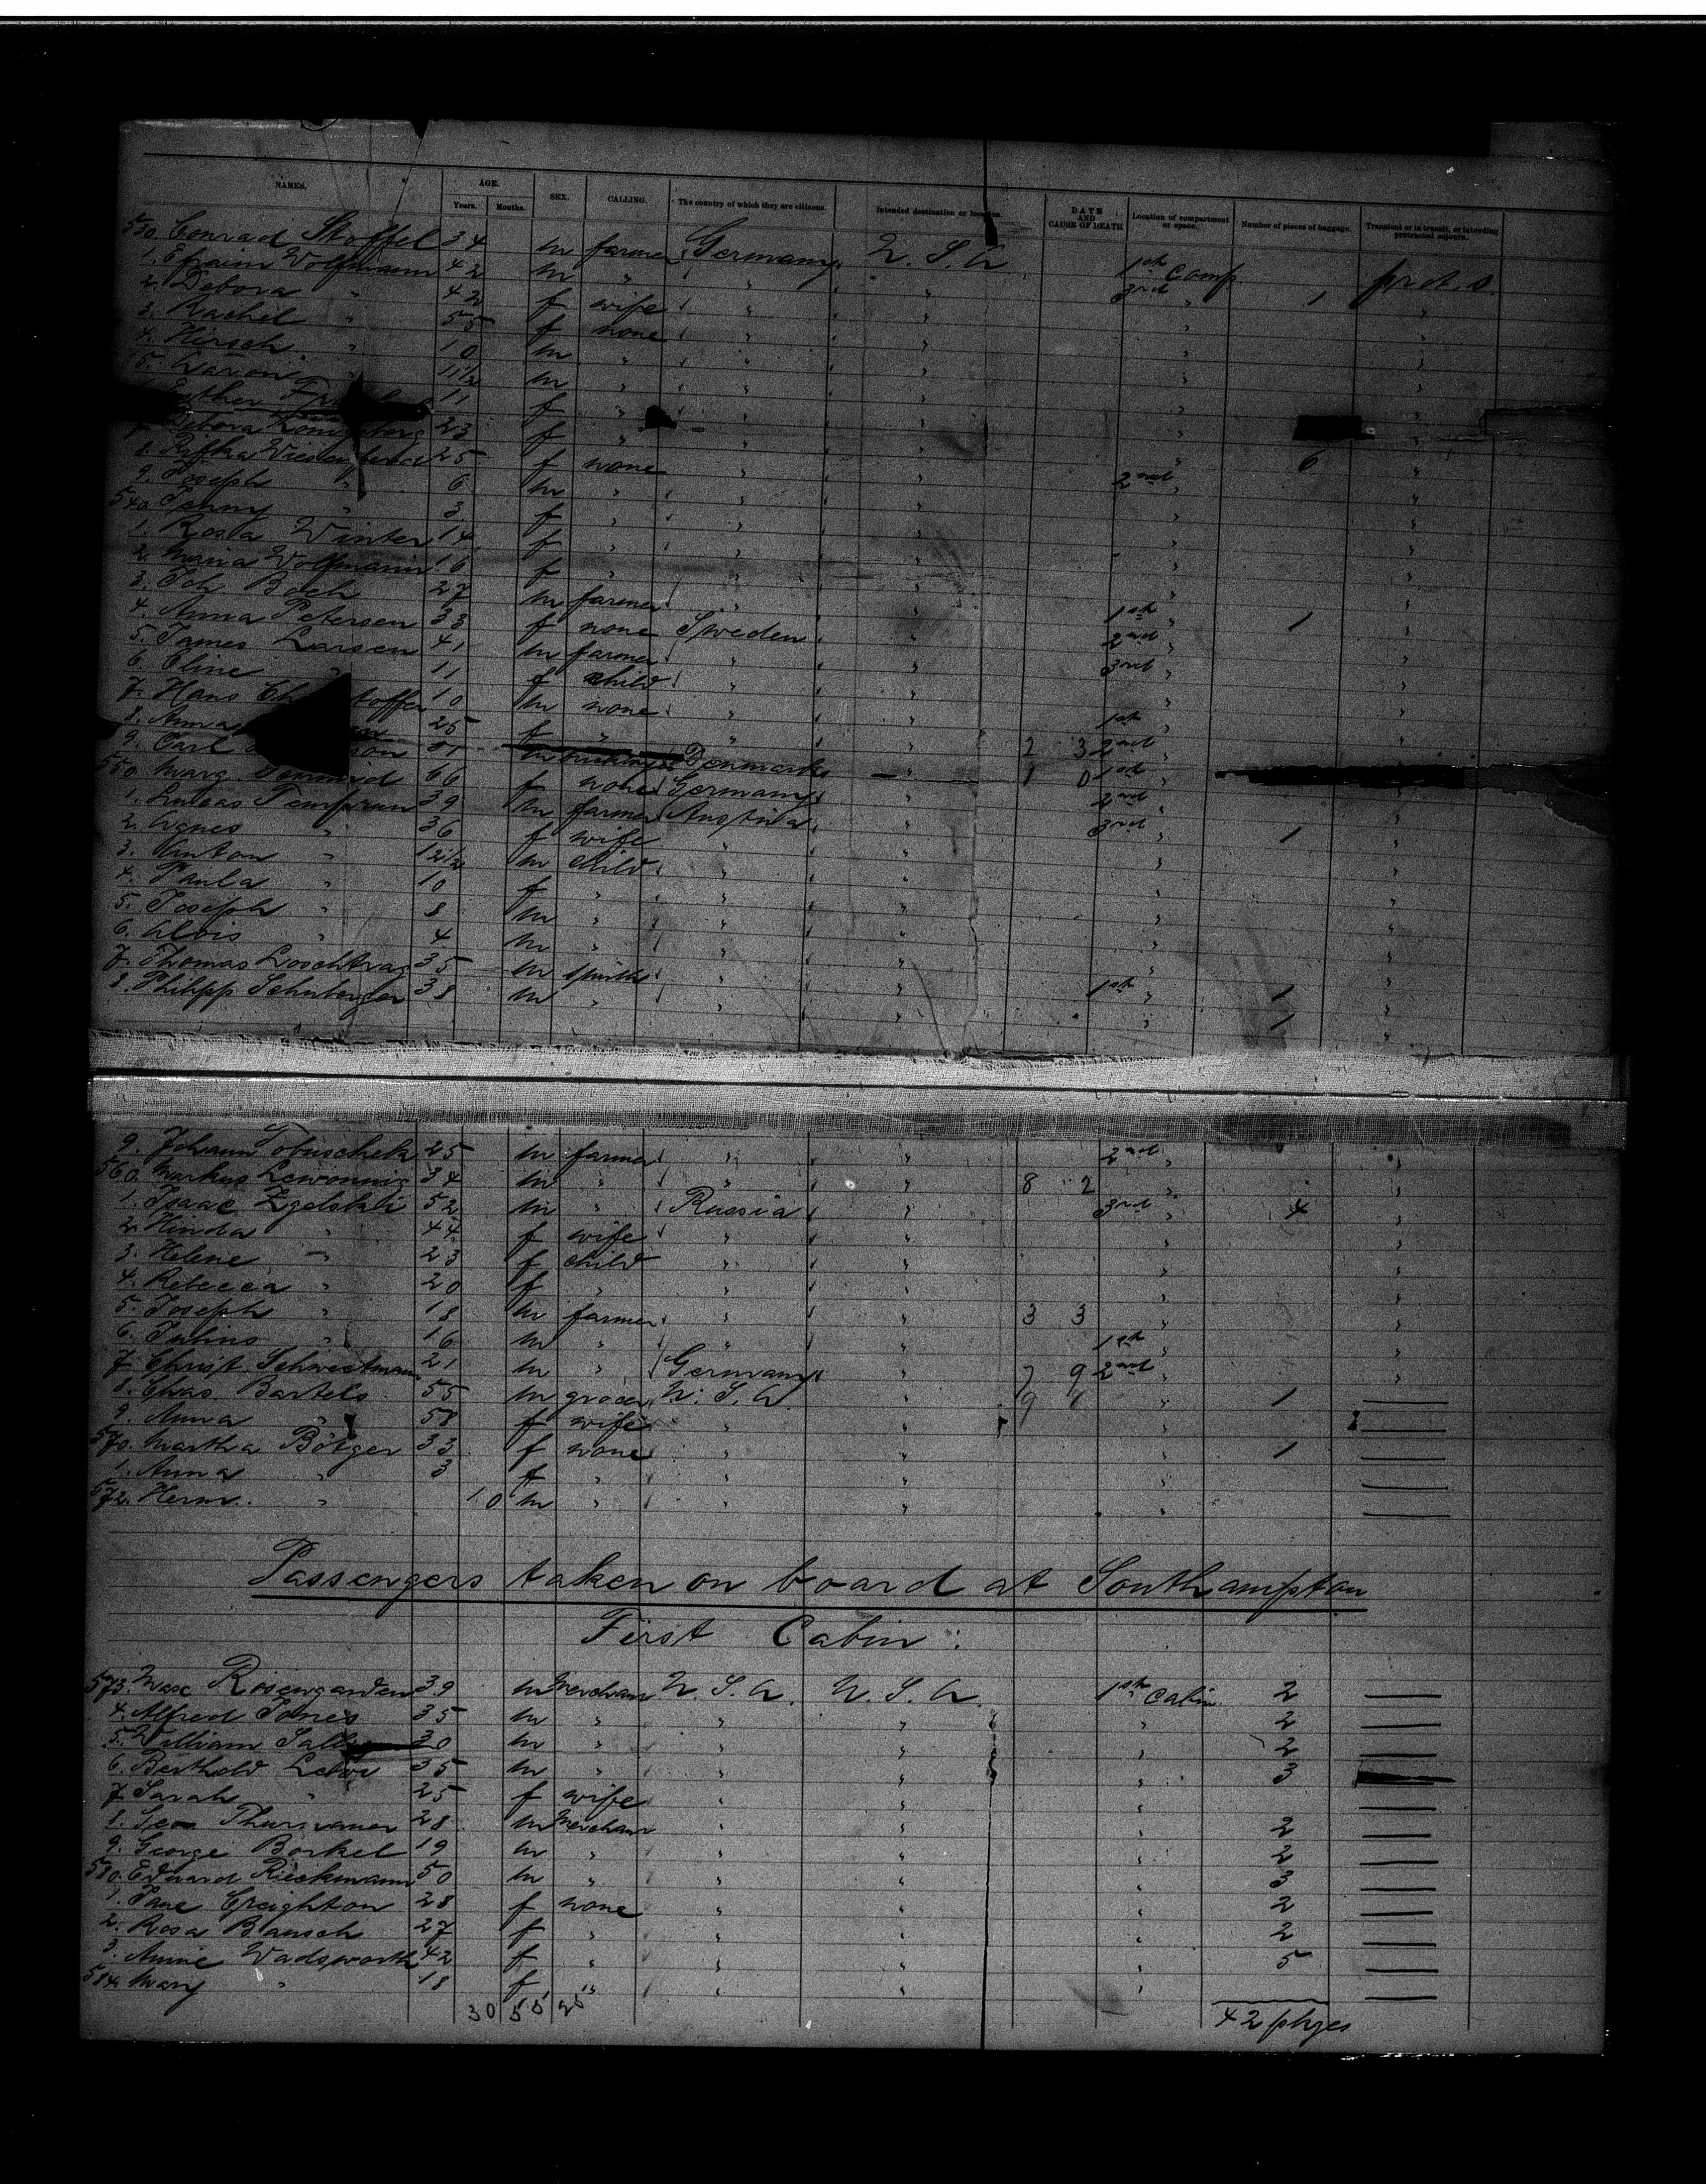 NAMES. AGE. SEX. CALLING. The country of which they are citizens. Intended destination or location. DATE AND CAUSE OF DEATH Location of compartment or space. Number of pieces of baggage. Transient or in transit, or intending protracted sojourn.
Years. Months.
530. Conrad Stoffel 34 m farmer Germany U.S.A 1st Comp prot. s.
1. Efraim Wolfmann 42 m " " " 3rd " 1 "
2. Debora " 42 f wife " " " "
3. Rachel " 55 f none " " " "
4. Hirsch " 10 m " " " " "
5. Aaron " 11½ m " " " " "
Esther 11 f " " " "
Debora Königsberg 23 f " " " " 6 "
8. Rifka 25 f none " " 2nd " "
9. Joseph " 6 m " " " " "
540. Jenny " 3 f " " " " "
1. Rosa Winter 14 f " " " " "
2. Maria Wolfmann 16 f " " " " "
3. Joh. Boch 27 m farmer " " 1st " 1 "
4. Anna Petersen 33 f none Sweden " 2nd " "
5. James Larsen 41 m farmer " " 3rd " "
6. Eline " 11 f child " " " "
7. Hans 10 m none " " 1st " "
8. Anna 25 f " " " 2 3 2nd " "
9. Carl m Denmark " 1 0 1st "
550. Marg. Schmid 66 f none Germany " 2nd " "
1. Lucas Temprun 39 m farmer Austria " 3rd " 1 "
2. Agnes " 36 f wife " " " "
3. Anton " 12½ m child " " " "
4. Paula " 10 f " " " " "
5. Joseph " 8 m " " " " "
6. Alois " 4 m " " " " "
7. Thomas 35 m smith " " 1st " 1 "
8. Philipp Schuberger 38 m " " " " 1 "
9. Johann Tobuschek 25 m farmer " " 2nd " "
560. Markus 34 m " " " 8 2 " "
1. Isaac Zgolski 52 m " Russia " 3rd " 4 "
2. Hinda " 44 f wife " " " "
3. Helene " 23 f child " " " "
4. Rebecca " 20 f " " " " "
5. Joseph " 18 m farmer " " 3 3 " "
6. Julius " 16 m " " " 1st " "
7. Christ. Schweetmann 21 m " Germany " 7 9 2nd " "
8. Chas. Bartels 55 m grocer U.S.A. " 9 " 1
9. Anna " 58 f wife " "
570. Martha Bötger 33 f none " " " 1
1. Anna " 3 f " " " "
572. Herm. " 10 m " " " "
Passengers taken on board at Southampton
First Cabin:
573. Max Rosengarden 39 m Merchant U.S.A. U.S.A. 1st Cabin 2
4. Alfred Jones 35 m " " " " 2
5. William 30 m " " " " 2
6. Berthold 35 m " " " " 3
7. Sarah " 25 f wife " " "
8. Leon Thurnauer 28 m Merchant " " " 2
9. George Borkel 19 m " " " " 2
580. Edward Rieckmann 50 m " " " " 3
1. Jane Creighton 28 f none " " " 2
2. Rosa Bausch 27 f " " " " 2
3. Annie Wadsworth 42 f " " " " 5
584. Mary " 18 f " " " "
30 55 25 42 pkges